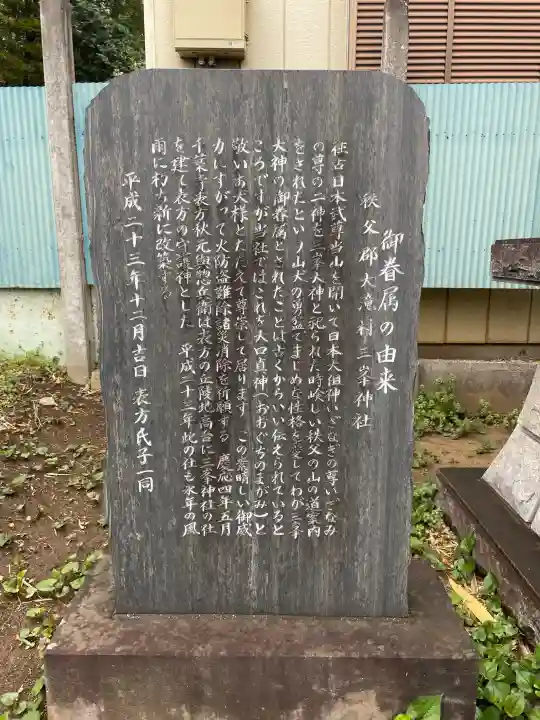 御眷属の由来
秩父郡大滝村三峯神社
往古日本武尊当山を開いて日本人祖神いざなぎの尊いざなみ
の尊の二神を三峯大神と祀られた時嶮しい秩父の山の道案内
をされたという山犬の勇猛でまじめな性格を愛してわが三峯
大神の御眷属とされたことは古くからいい伝えられていると
ころですが当社ではこれを大口真神(おおぐちのまがみ)と
敬いお犬様とたたえて尊崇して居ります この素晴しい御威
力にすがって火防盗難除諸災消除を祈願する 慶応四年五月
千葉寺表方秋元與惣兵衛は表方の丘陵地高台に三峯神社の社
を建て表方の守護神とした 平成二十三年此の社も永年の風
雨に朽ち新に改築する
平成二十三年十二月吉日 表方氏子一同